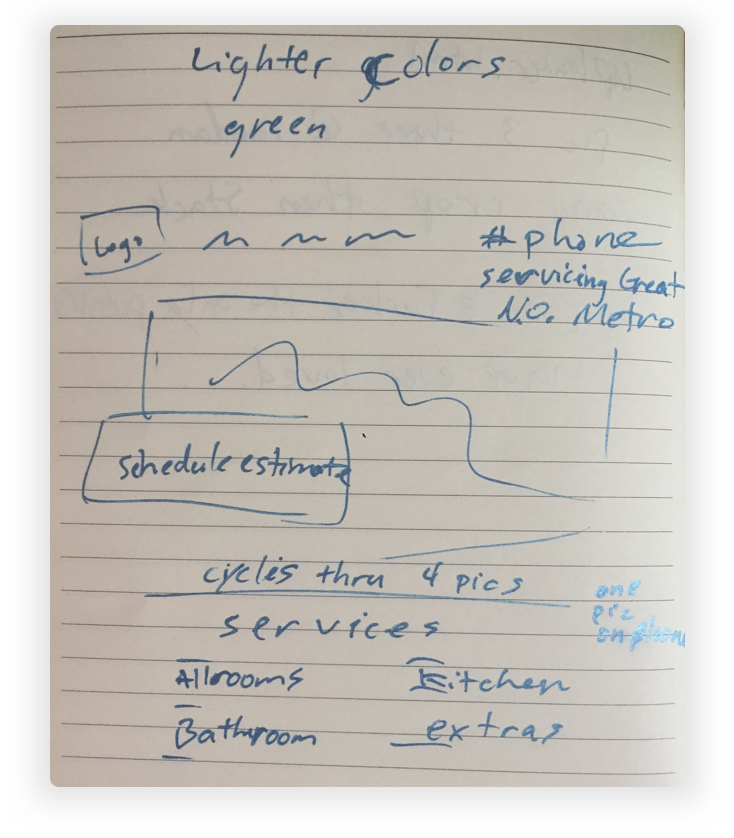 Lighter Colors
green
Logo
# phone
servicing Great
N.O. Metro
schedule estimate
cycles thru 4 pics
one
pic
on phone
services
Allrooms
Kitchen
Bathroom
extras